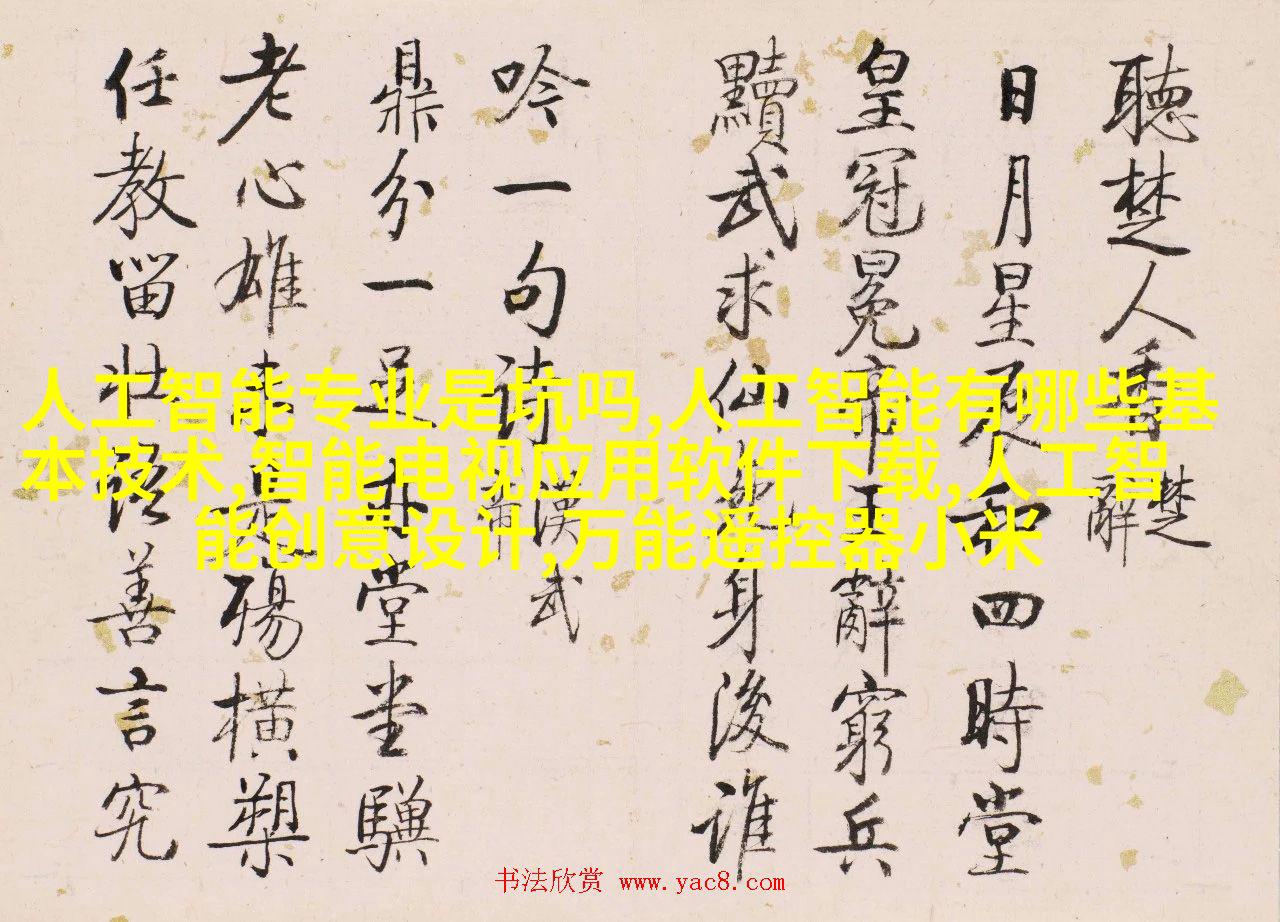 聽楚人
楚
辭
日月星辰和四時堂
皇冠冕帝王辭窮兵
黷武求仙身後誰
吟一句詩
漢武
鼎分一足亦堂堂驥
老心雄殤橫槊
任教留壯語善言究
人工智能专业是坑吗,人工智能有哪些基
本技术,智能电视应用软件下载,人工智
能创意设计,万能遥控器小米
书法欣赏 www.yac8.com